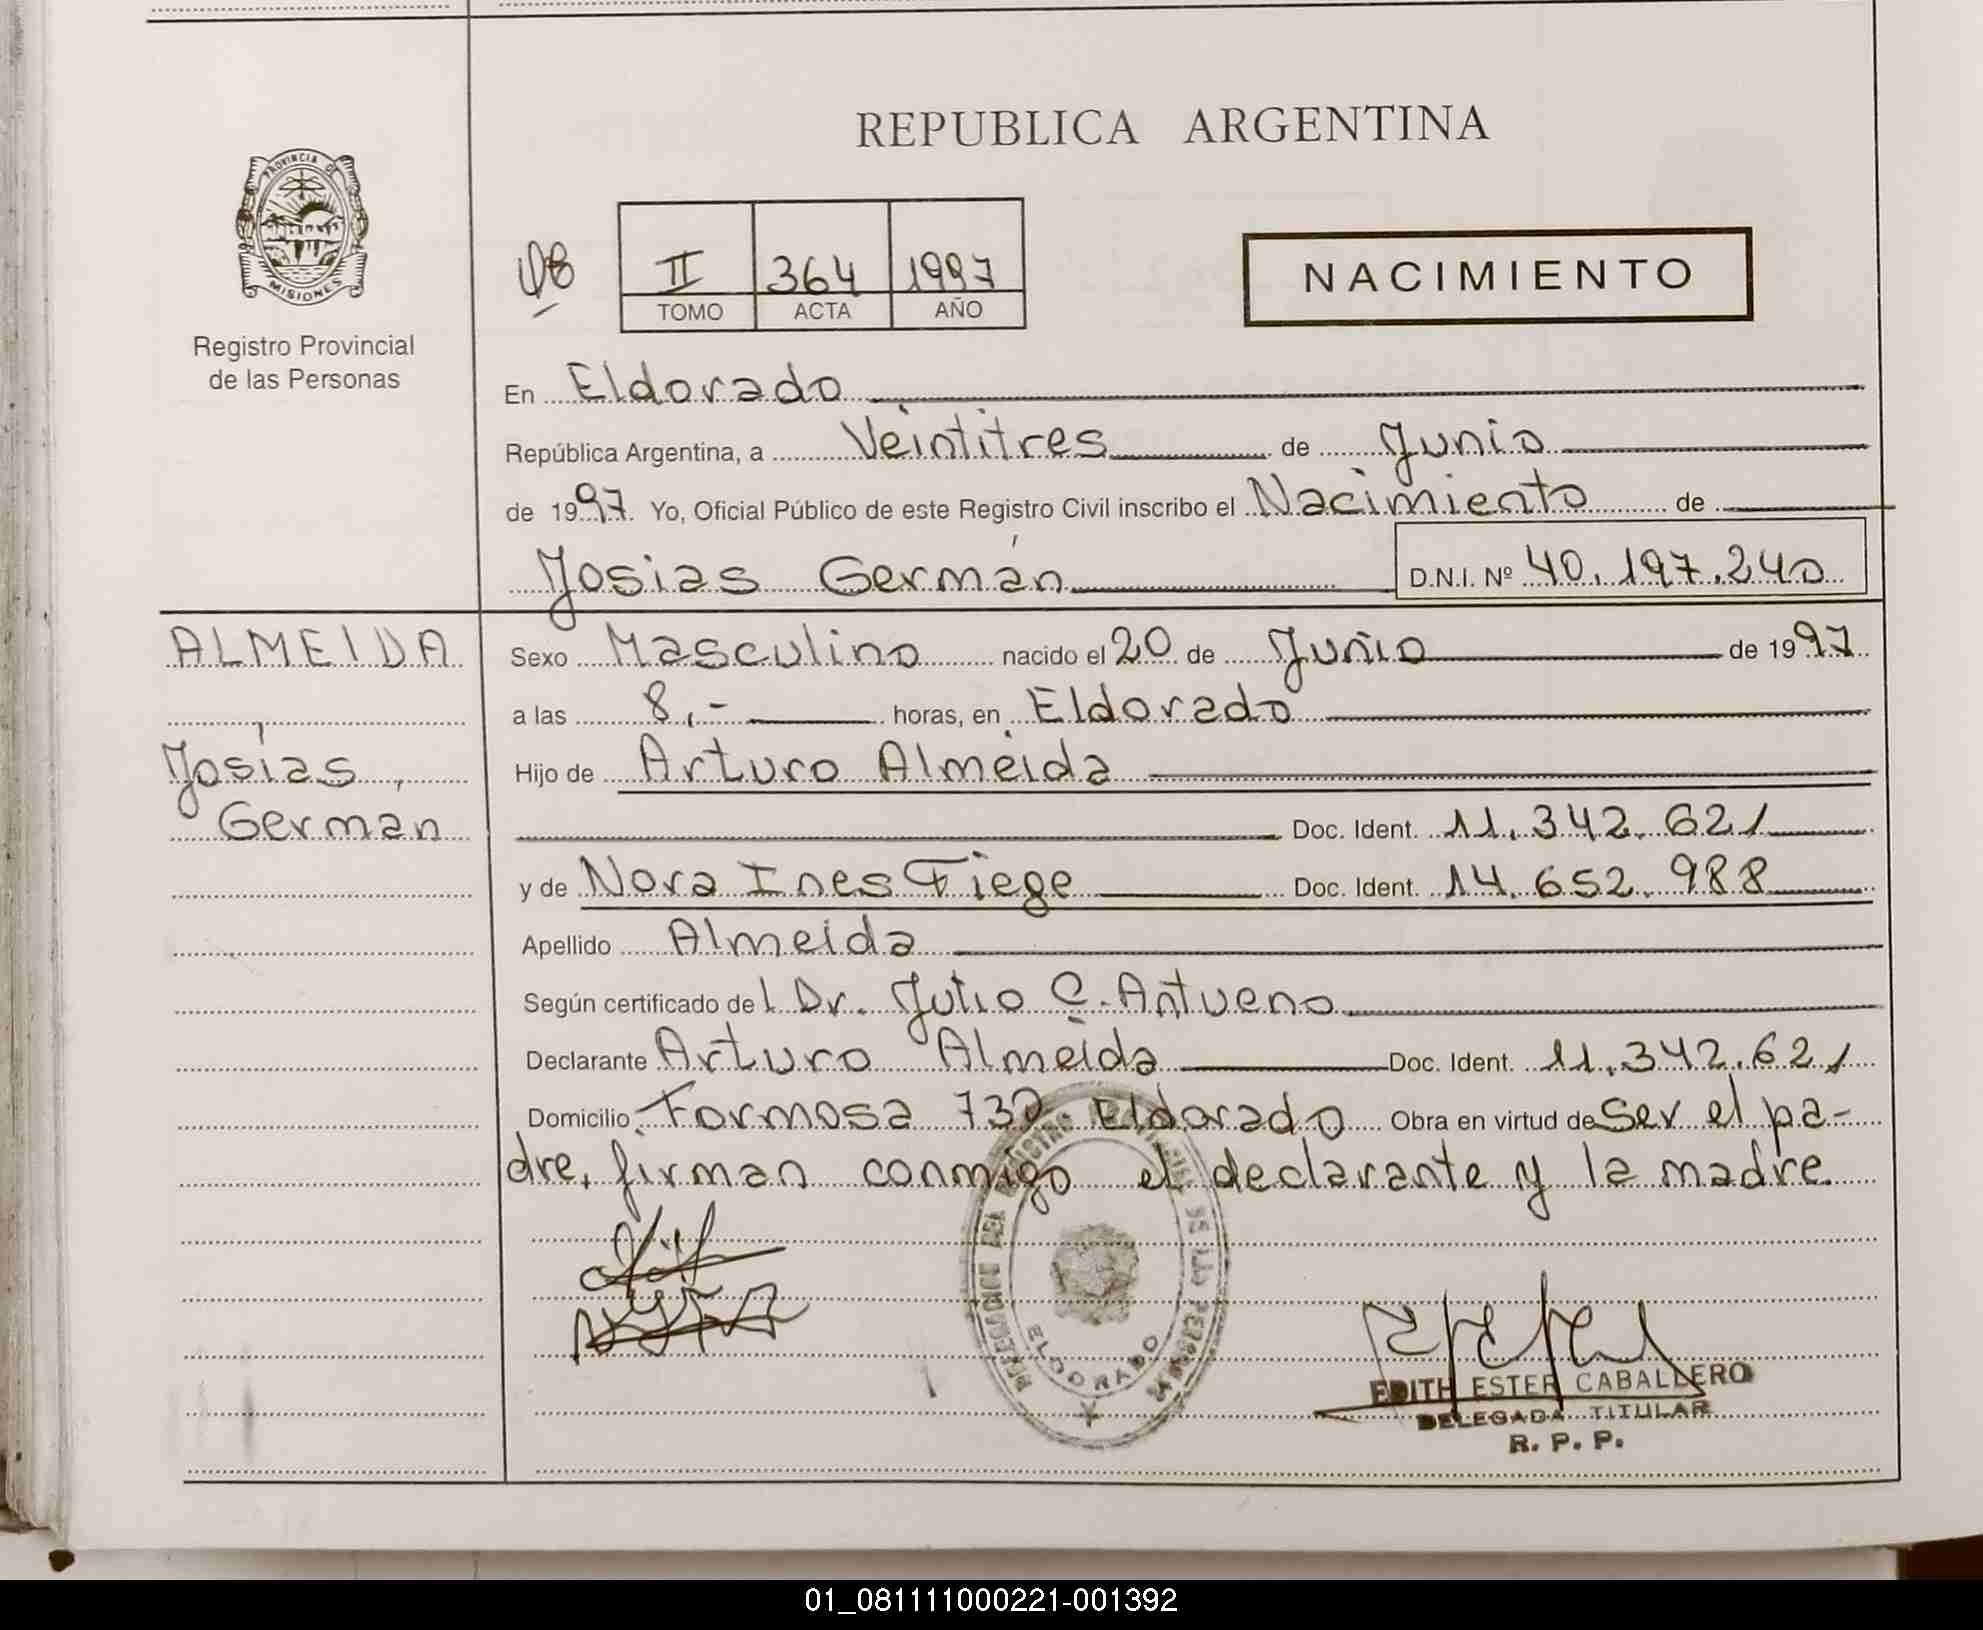 REPUBLICA ARGENTINA
PROVINCIA DE
MISIONES
Registro Provincial
de las Personas
II 364 1997
TOMO ACTA AÑO
NACIMIENTO
En Eldorado
República Argentina, a Veintitres de Junio
de 1997 Yo, Oficial Público de este Registro Civil inscribo el Nacimiento de
Josias Germán D.N.I. Nº 40.197.240
ALMEIDA
Josías,
German
Sexo Masculino nacido el 20 de Junio de 1997
a las 8,- horas, en Eldorado
Hijo de Arturo Almeida
Doc. Ident. 11.342.621
y de Nora Ines Fiege Doc. Ident. 14.652.988
Apellido Almeida
Según certificado de l Dr. Julio C. Antueno
Declarante Arturo Almeida Doc. Ident. 11.342.621
Domicilio Formosa 732 Eldorado Obra en virtud de Ser el pa-
dre, firman conmigo el declarante y la madre.
ELDORADO
EDITH ESTER CABALLERO
DELEGADA TITULAR
R. P. P.
01_081111000221-001392